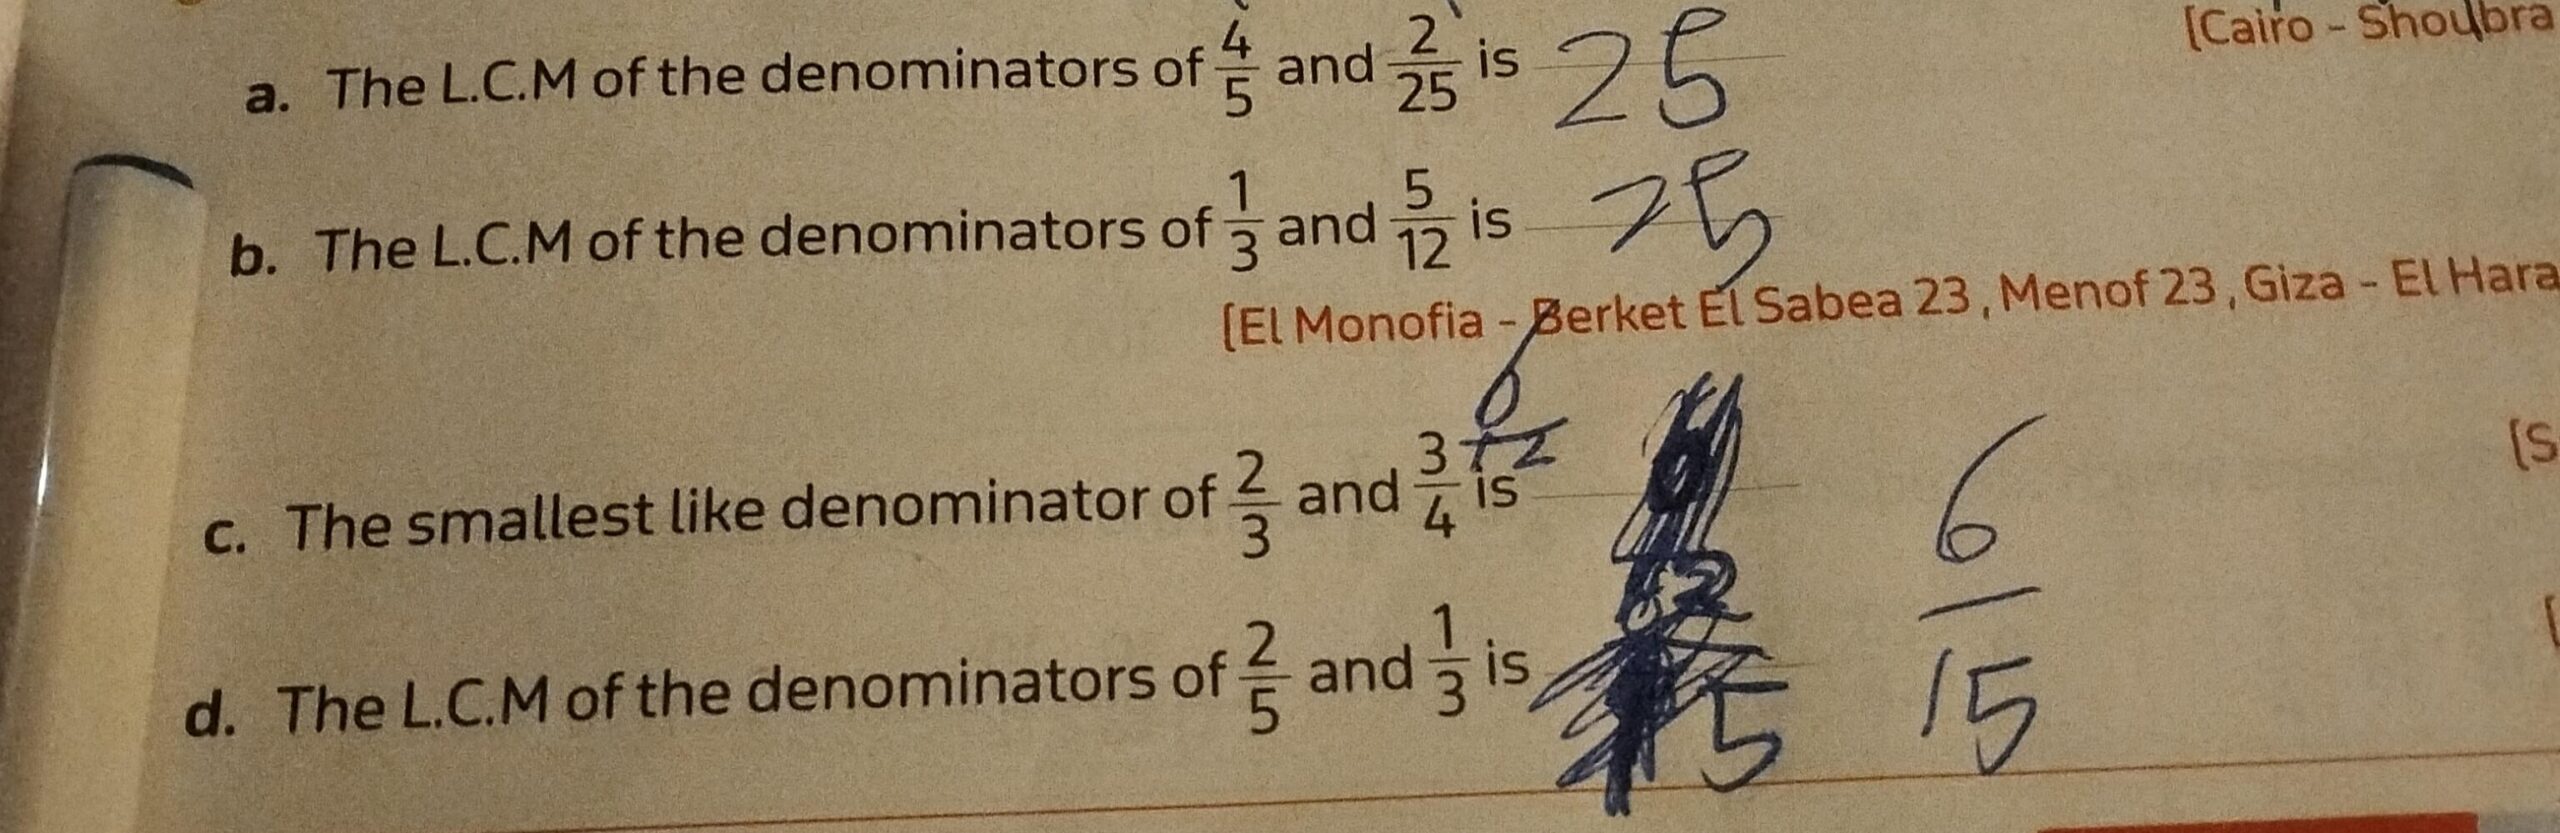 [Cairo - Shoubra
a. The L.C.M of the denominators of 4/5 and 2/25 is 25
b. The L.C.M of the denominators of 1/3 and 5/12 is 25
[El Monofia - Berket El Sabea 23, Menof 23, Giza - El Hara
6/12
c. The smallest like denominator of 2/3 and 3/4 is
[S
6/15
d. The L.C.M of the denominators of 2/5 and 1/3 is 15
[